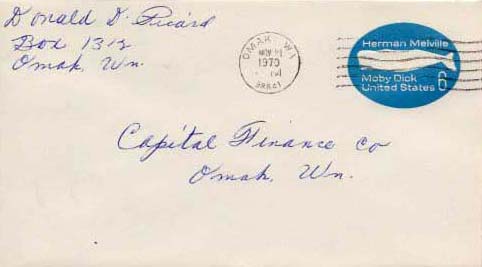 Donald D. Picard
Box 1312
Omak, Wn.
OMAK, W
NOV
1970
98841
Herman Melville
Moby Dick
United States 6
Capital Finance Co
Omak, Wn.